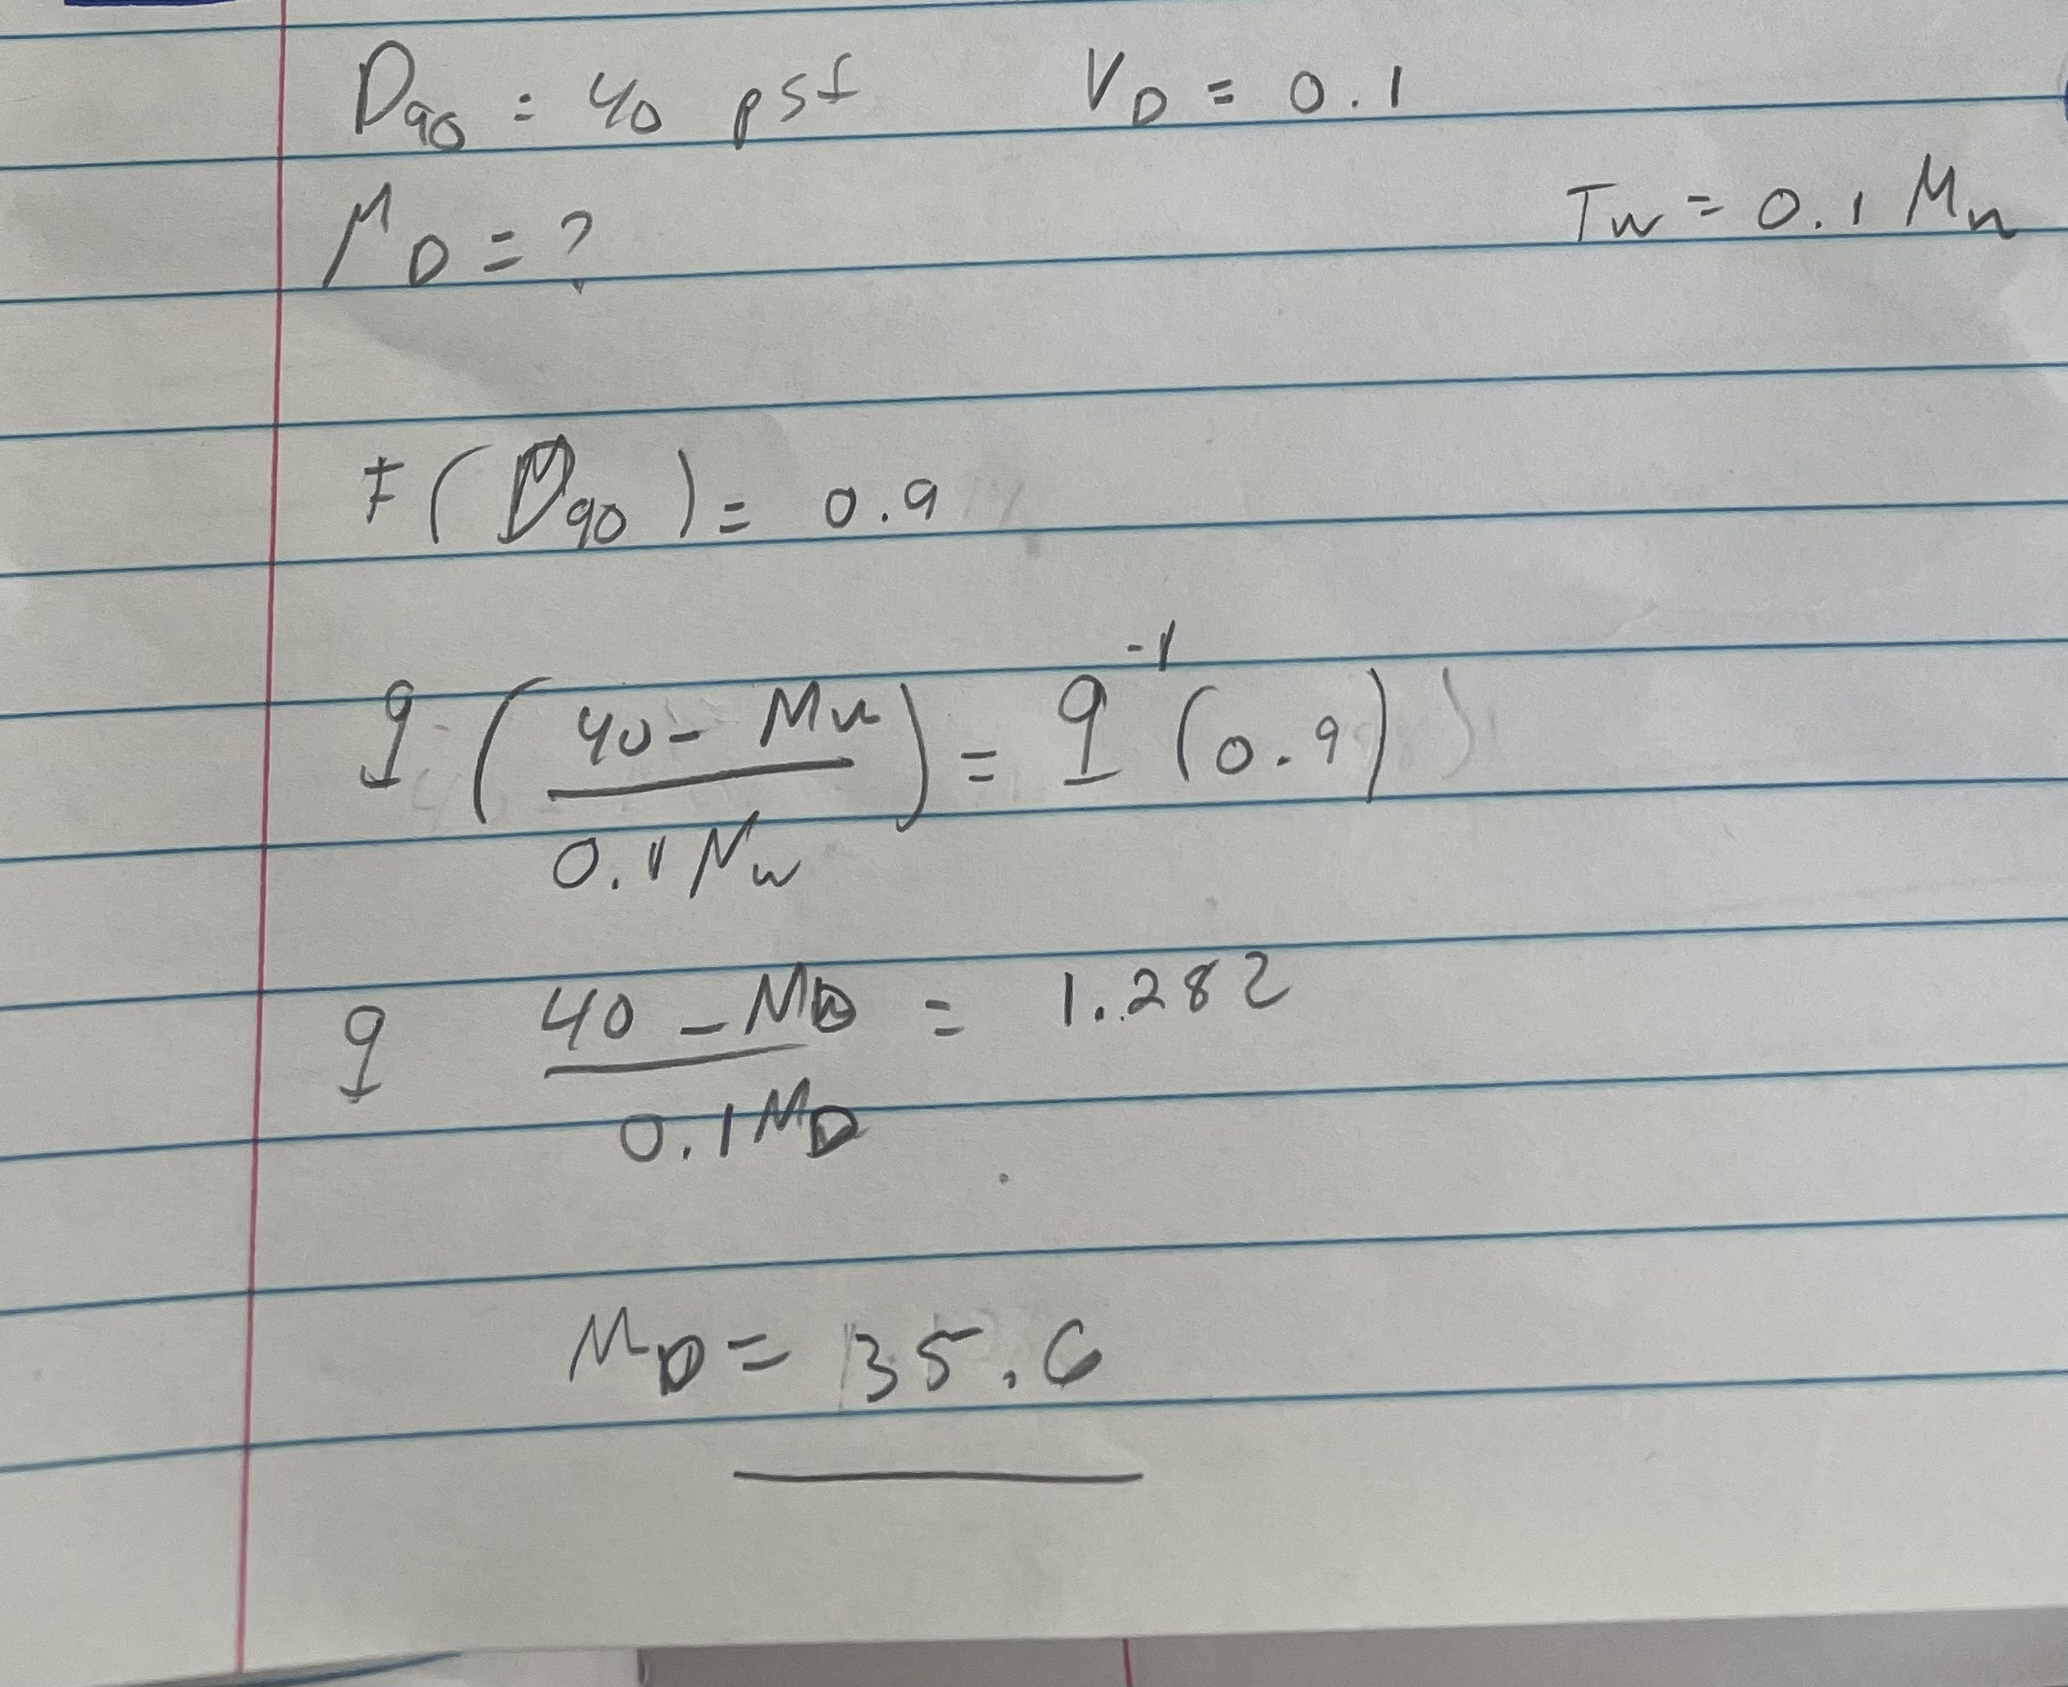 D90 = 40 psf VD = 0.1
μD = ? Tw = 0.1 Mn
F(D90) = 0.9
Φ (40 - Mn / 0.1 Mw) = Φ^-1 (0.9)
Φ 40 - MD / 0.1 MD = 1.282
MD = 35.6